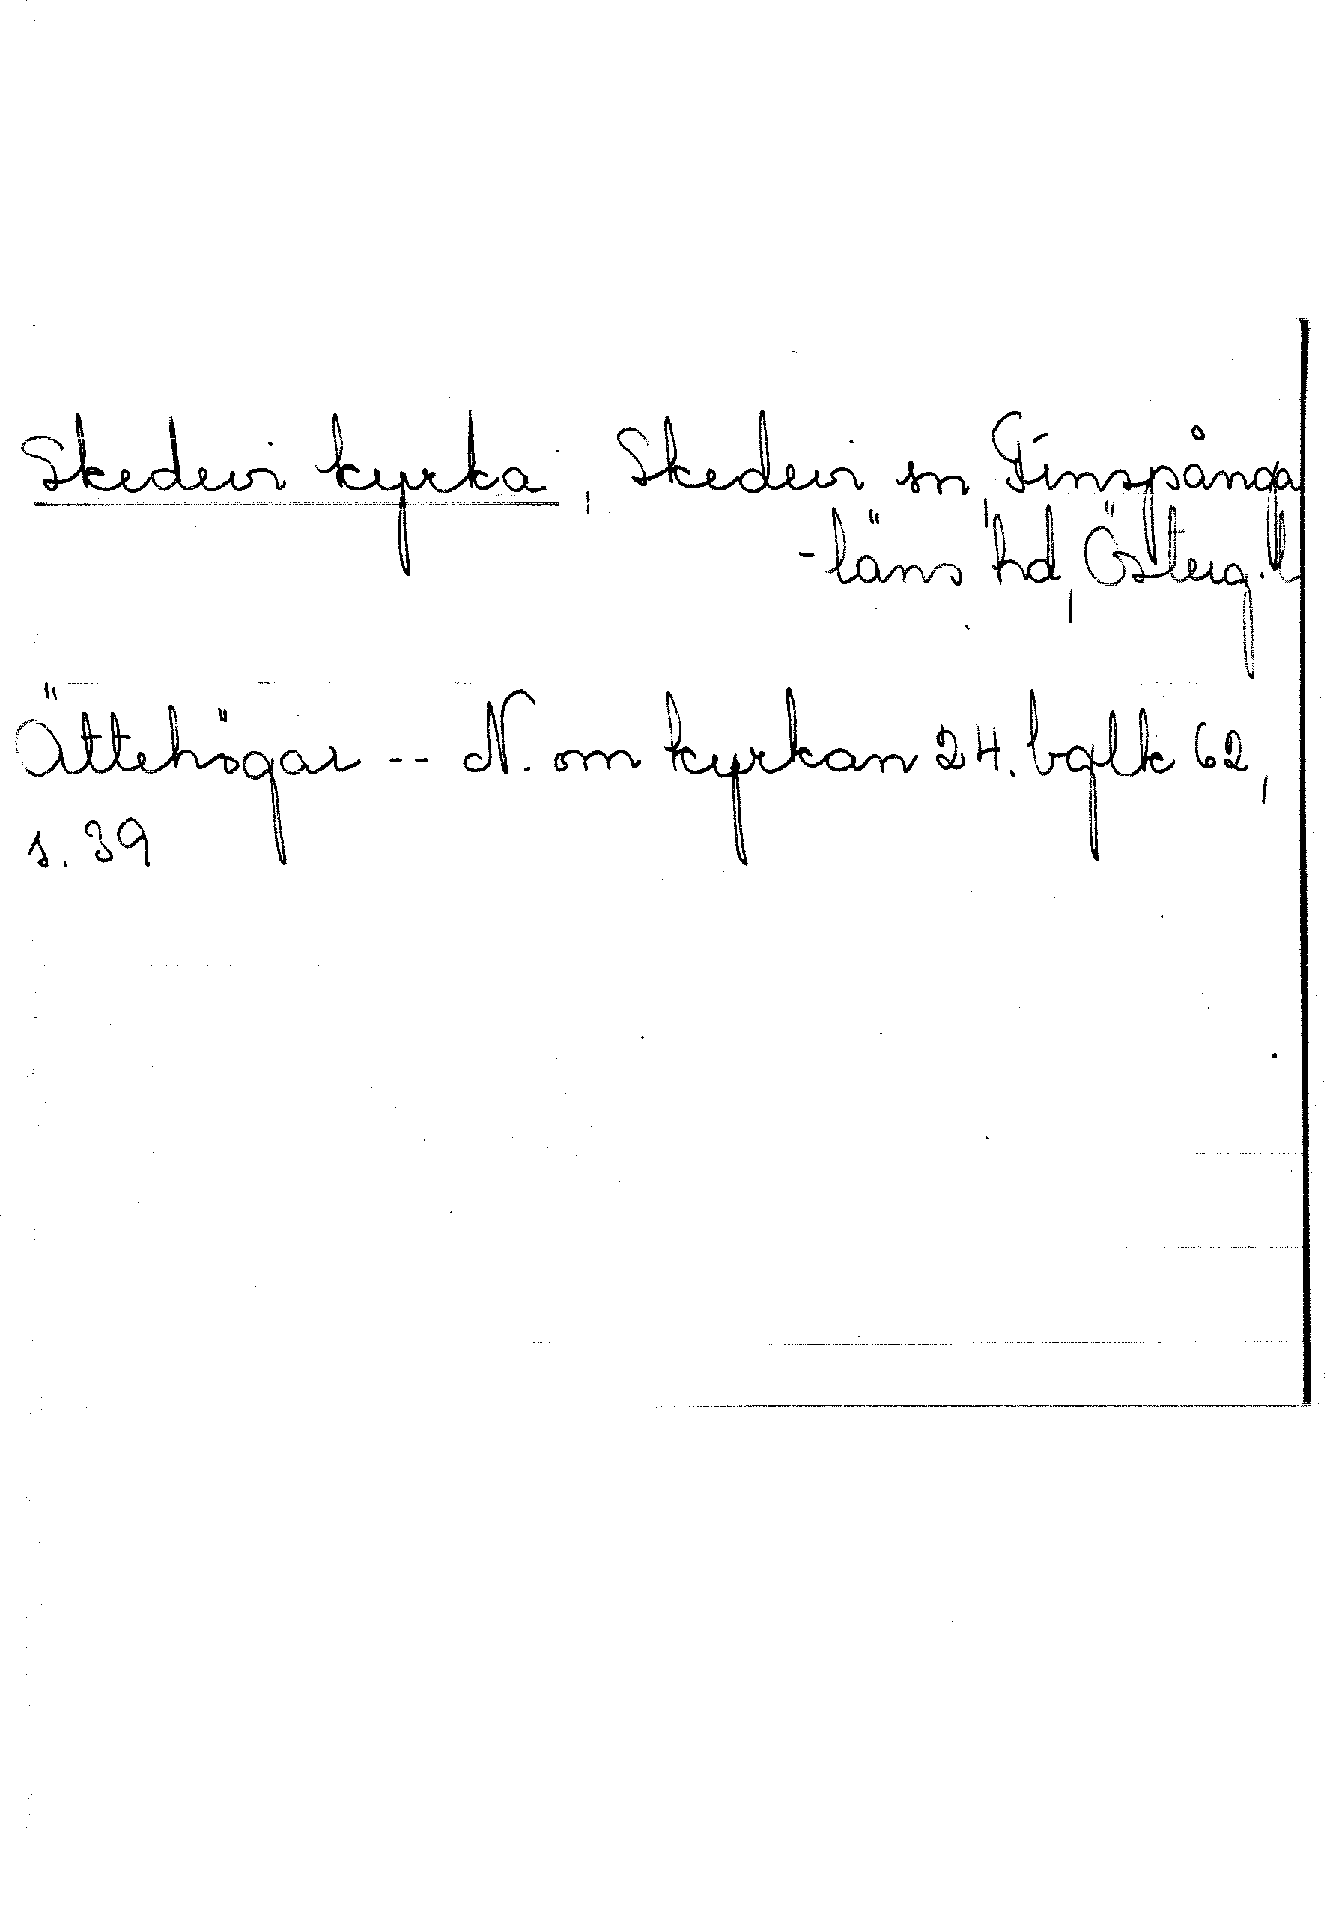 Skedevi kyrka, Skedevi sn, Finspånga
-läns hd, Österg. l
Ättehögar -- N. om kyrkan 24. bglk 62,
s. 39